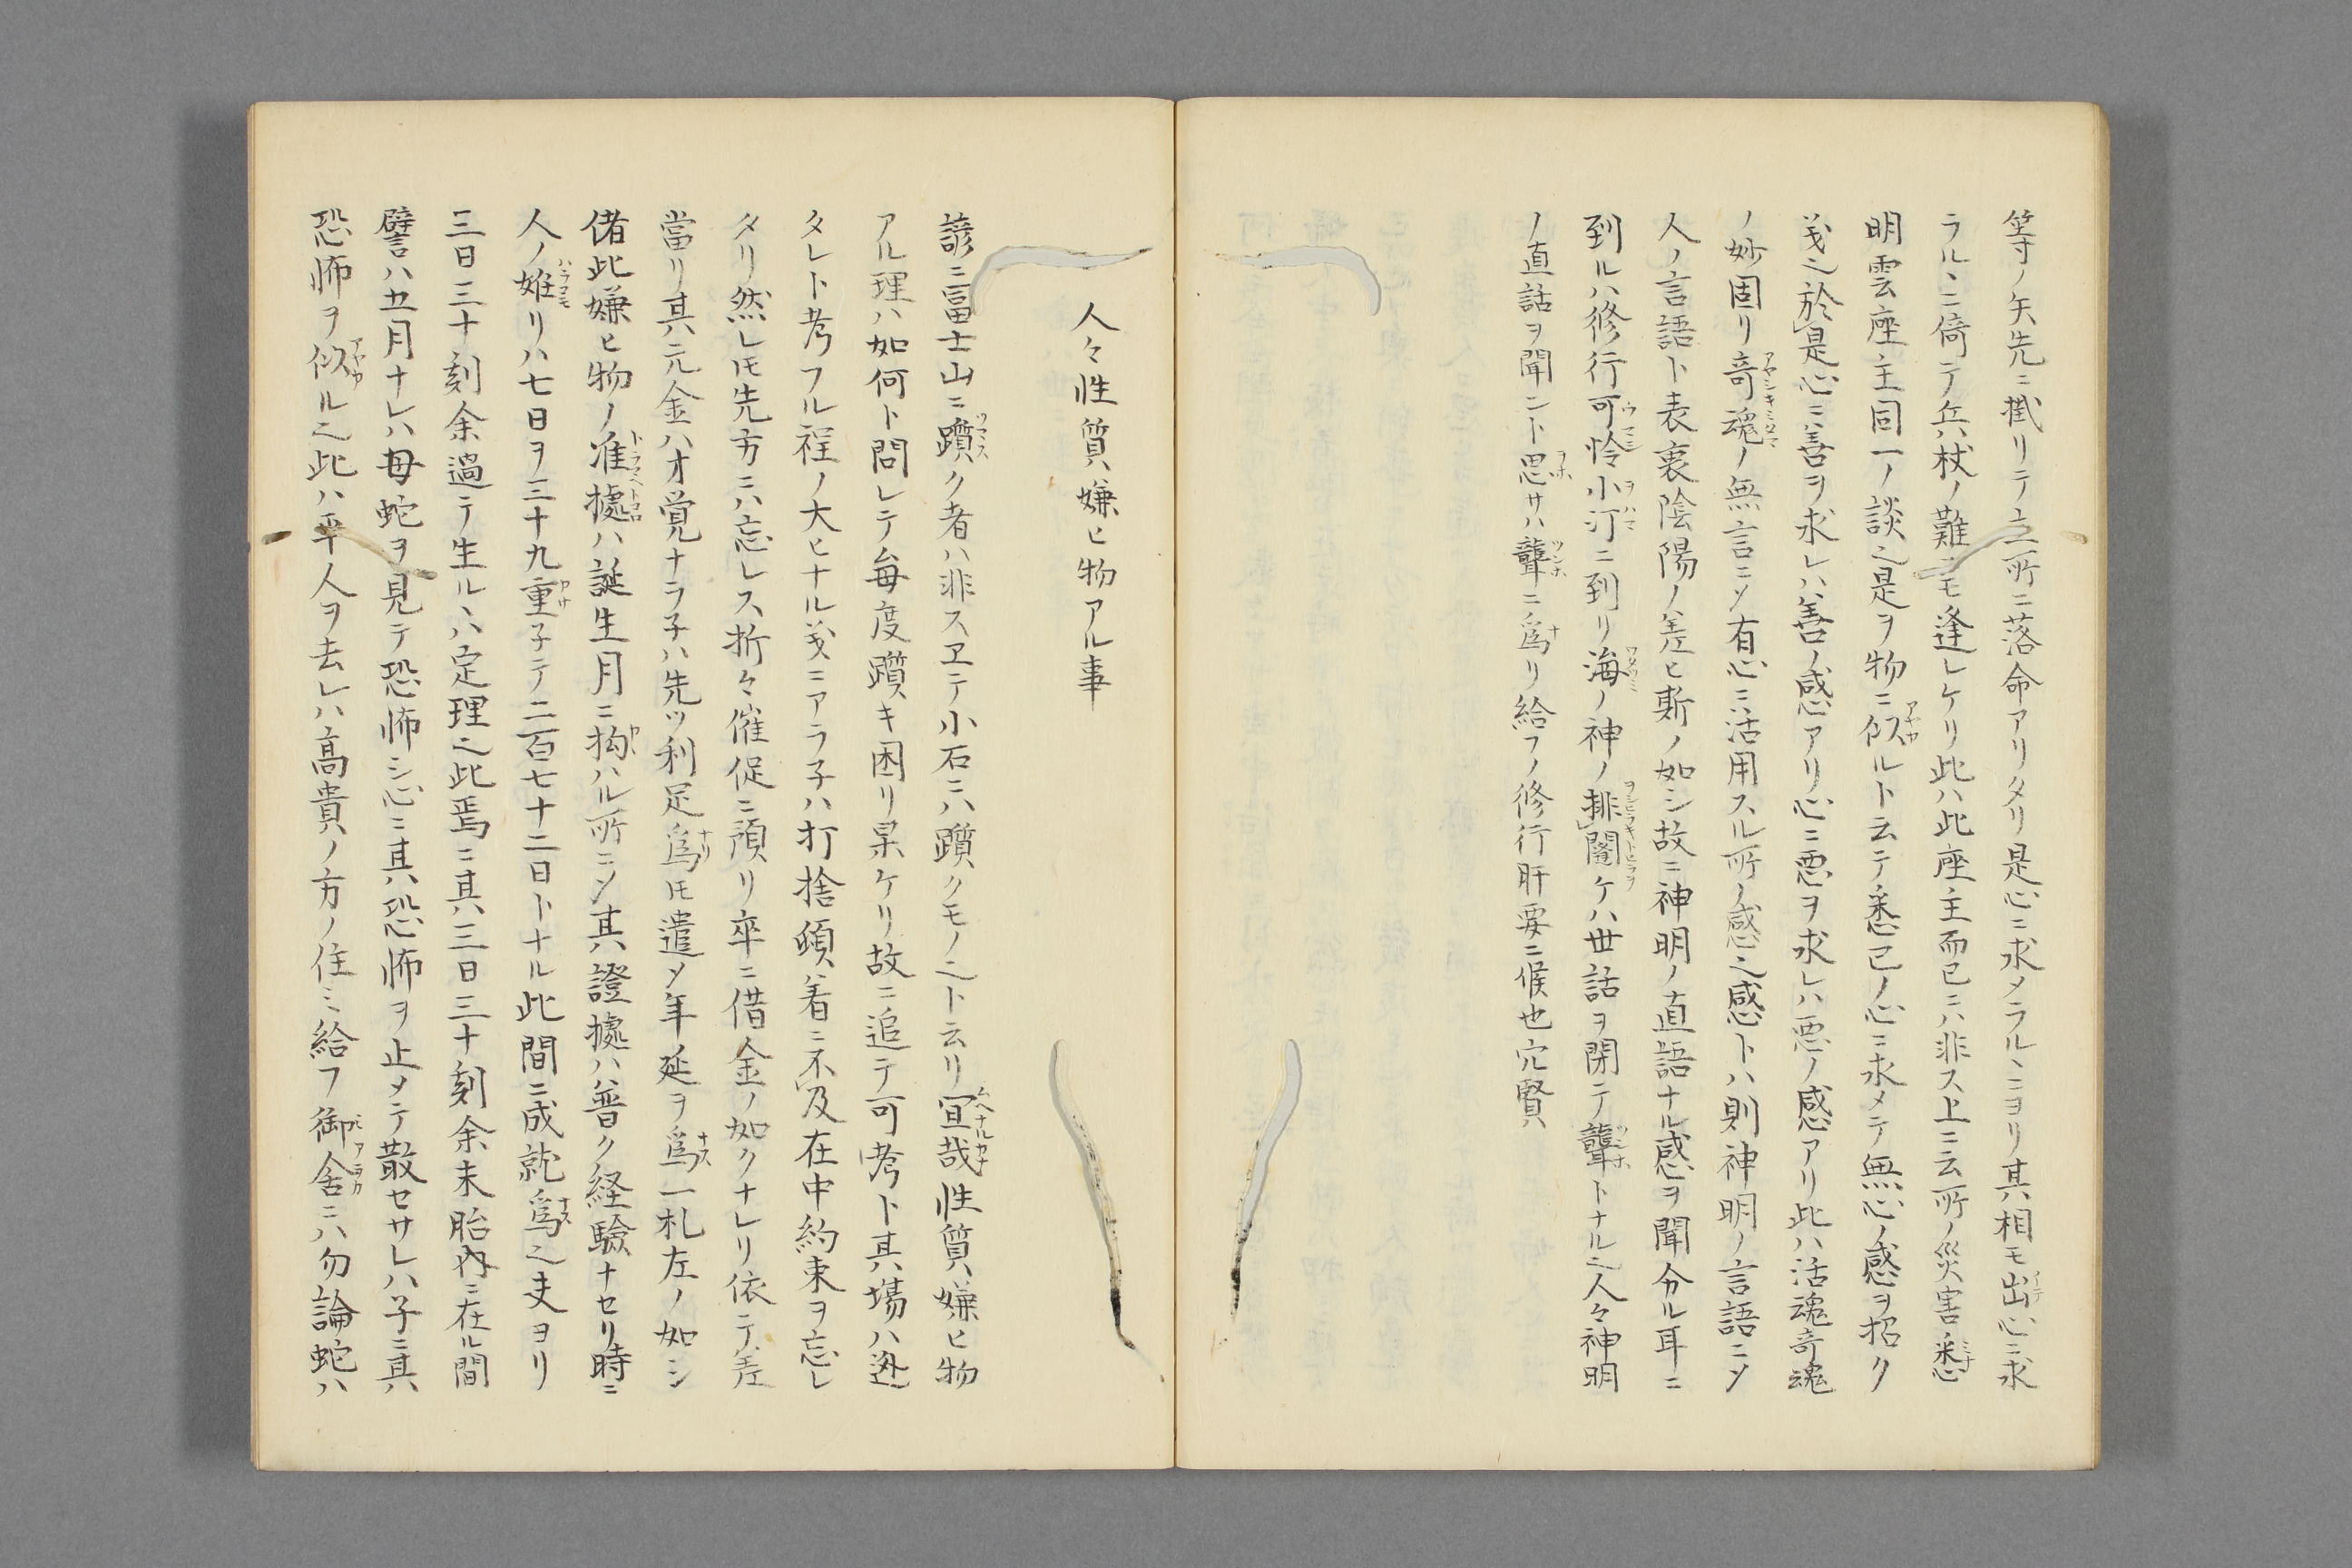 等ノ矢先ニ掛リテ立所ニ落命アリタリ是心ニ求メラルヽニヨリ其相モ出心ニ求
ラルヽニ倚テ兵杖ノ難ニモ逢レケリ此ハ此座主而已ニハ非ス上ニ云所ノ災害悉
明雲座主同一ノ談也是ヲ物ニ似ルト云テ悉己ノ心ニ求メテ無心ノ感ヲ招ク
義也於是心ニ善ヲ求レハ善ノ感アリ心ニ悪ヲ求レハ悪ノ感アリ此ハ活魂奇魂
ノ妙固リ奇魂ノ無言ニメ有心ニ活用スル所ノ感也感トハ則神明ノ言語ニメ
人ノ言語ト表裏陰陽ノ差ヒ斯ノ如シ故ニ神明ノ直語ナル感ヲ聞分ル耳ニ
到ルハ修行可怜小汀ニ到リ海ノ神ノ排闔ケハ世話ヲ閉テ聾トナル也人々神明
ノ直話ヲ聞ント思サハ聾ニ為リ給フノ修行肝要ニ候也穴賢
人々性質嫌ヒ物アル事
諺ニ富士山ニ躓ク者ハ非スヱテ小石ニハ躓クモノ也ト云リ宜哉性質嫌ヒ物
アル理ハ如何ト問レテ毎度躓キ困リ果ケリ故ニ追テ可考ト其場ハ迯
タレト考フル程ノ大ヒナル義ニアラ子ハ打捨頓着ニ不及在中約束ヲ忘レ
タリ然レ㒵先方ニハ忘レス折々催促ニ預リ卒ニ借金ノ如クナレリ依テ差
當リ其元金ハオ覚ナラ子ハ先ツ利足為㒵遣メ年延ヲ為一札左ノ如シ
偖此嫌ヒ物ノ准據ハ誕生月ニ拘ハル所ニメ其證據ハ普ク経驗ナセリ時ニ
人ノ姙リハ七日ヲ三十九重子テ二百七十二日トナル此間ニ成就為也夫ヨリ
三日三十刻余過テ生ルヽハ定理也此焉ニ其三日三十刻余未胎内ニ在ル間
譬ハ五月ナレハ母蛇ヲ見テ恐怖シ心ニ其恐怖ヲ止メテ散セサレハ子ニ其
恐怖ヲ似ル也此ハ平人ヲ去レハ高貴ノ方ノ住ミ給フ御舎ニハ勿論蛇ハ